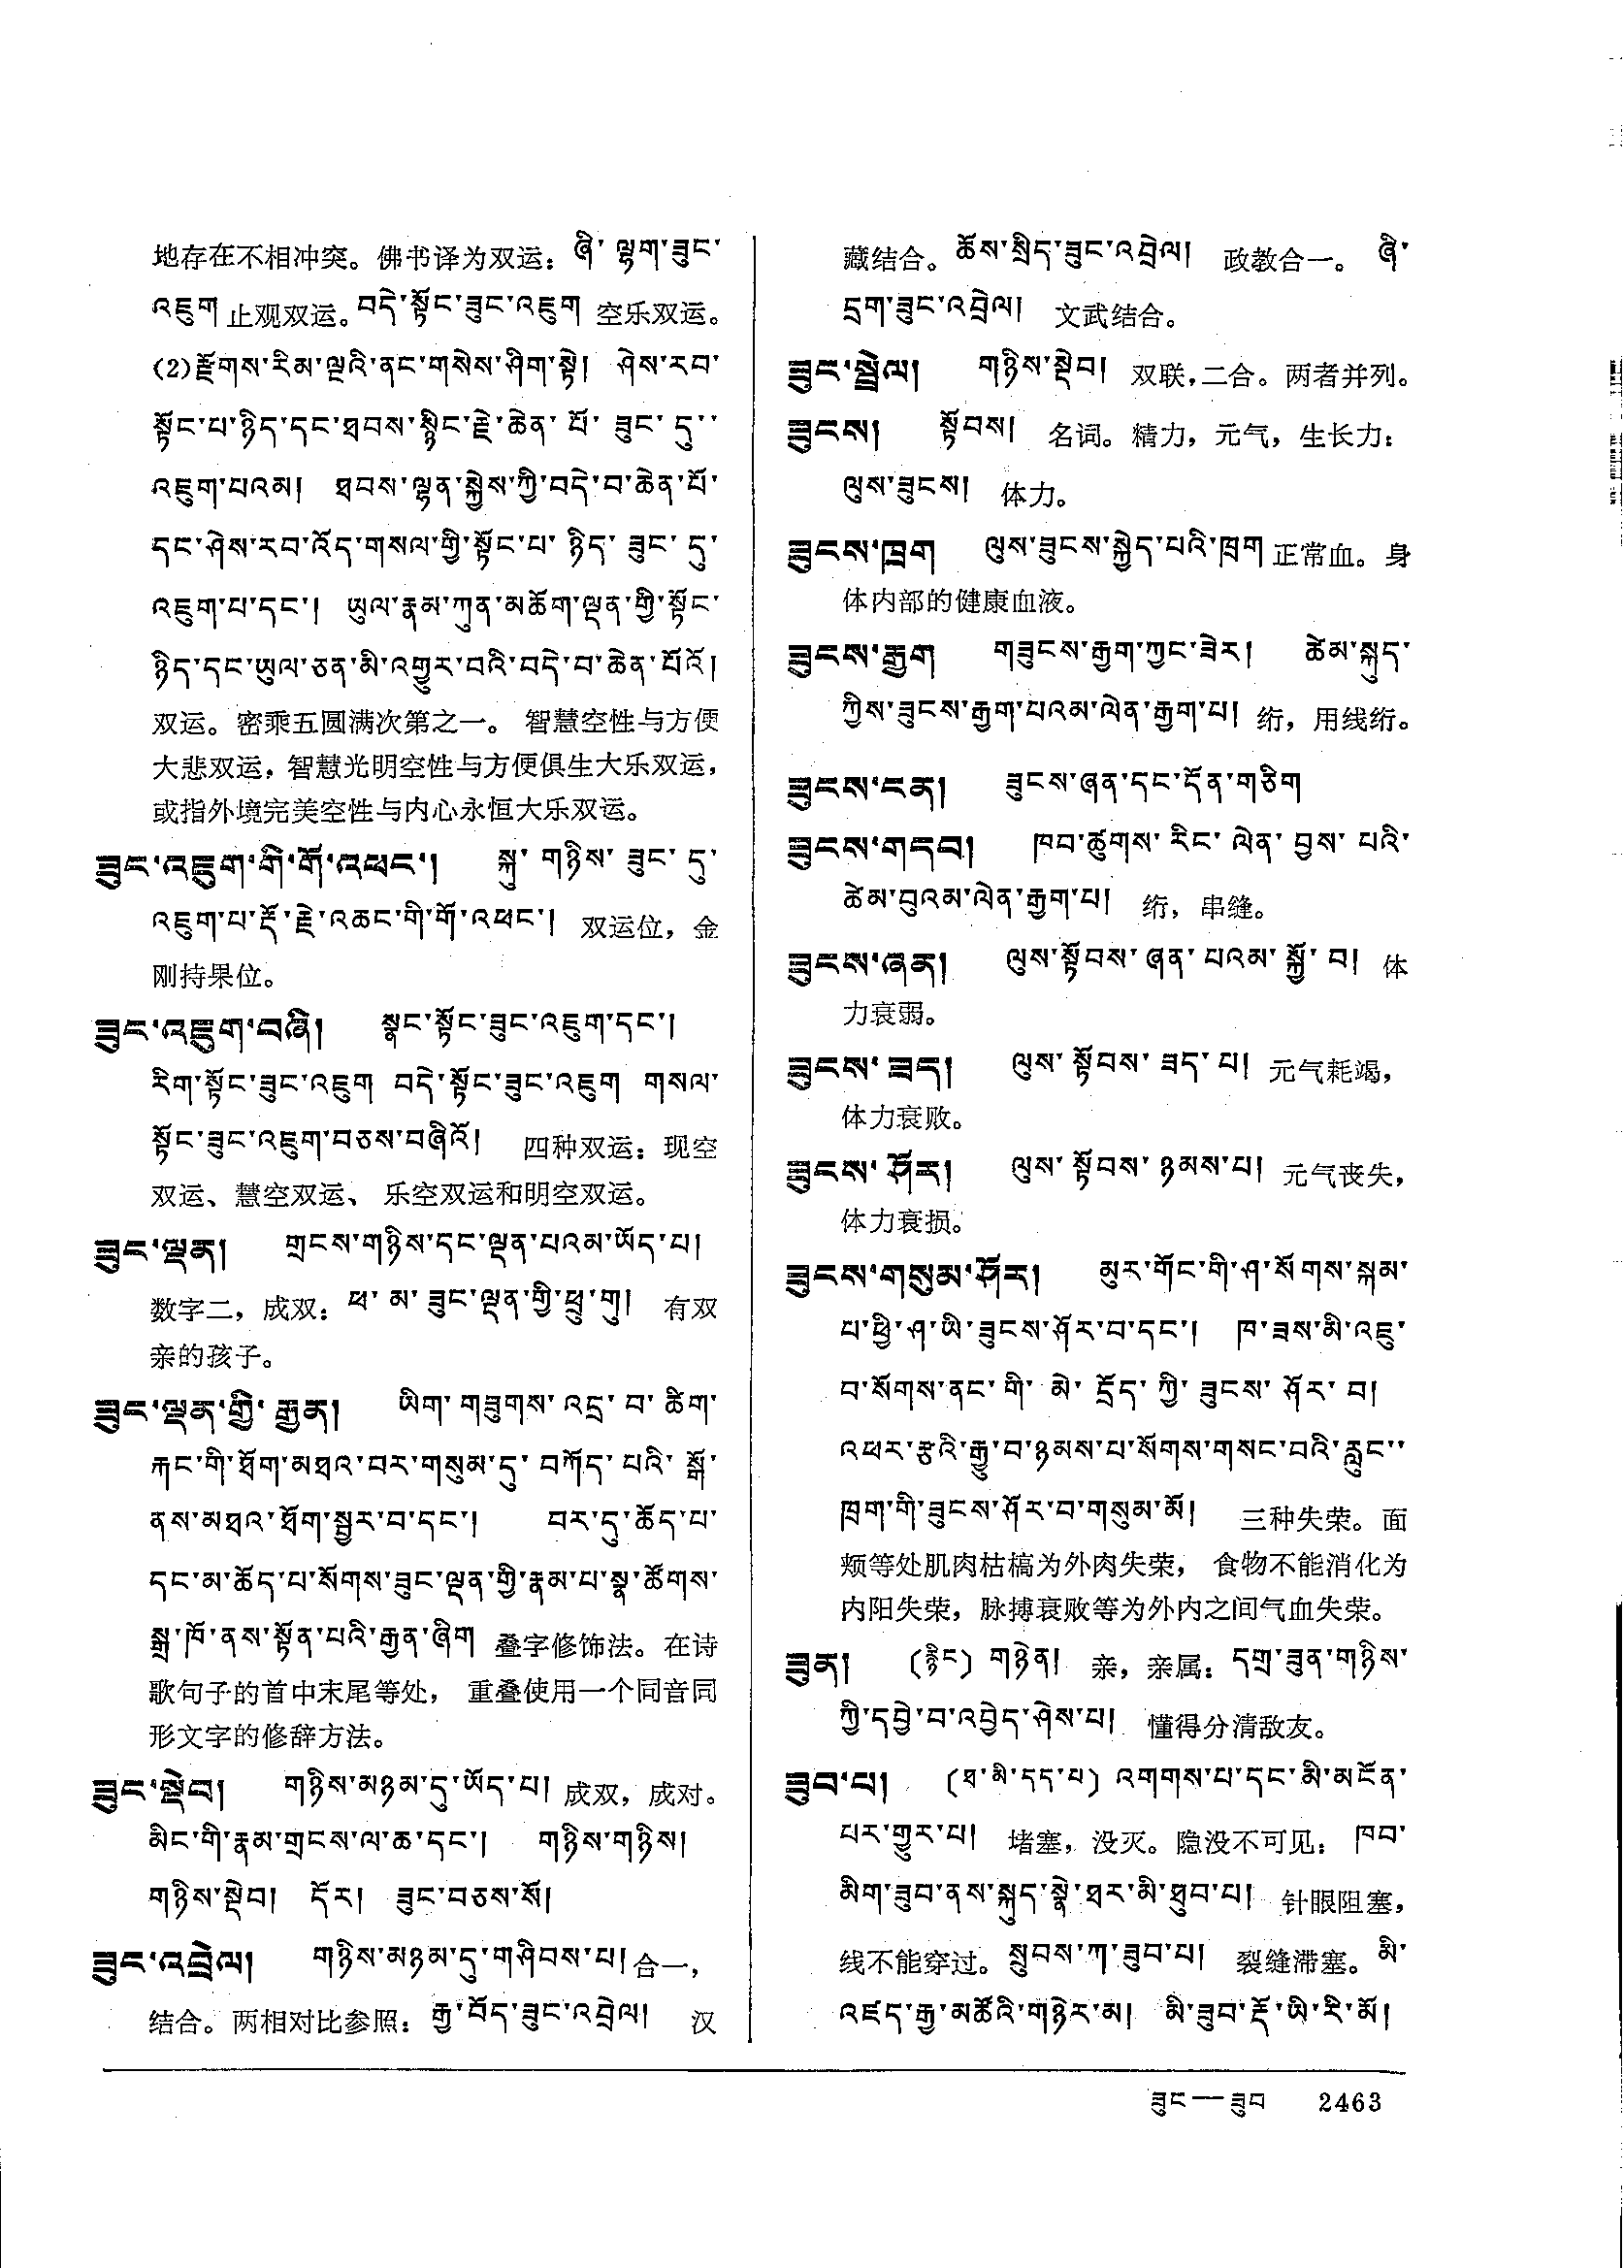 地存在不相冲突。佛书译为双运：ཞི་ ལྷག་ཟུང་
འཇུག 止观双运。བདེ་སྟོང་ཟུང་འཇུག 空乐双运。
(2)རྫོགས་རིམ་ལྔའི་ནང་གསེས་ཤིག་སྟེ། ཤེས་རབ་
སྟོང་པ་ཉིད་དང་ཐབས་སྙིང་རྗེ་ཆེན་ པོ་ ཟུང་ དུ་
འཇུག་པའམ། ཐབས་ལྷན་སྐྱེས་ཀྱི་བདེ་བ་ཆེན་པོ་
དང་ཤེས་རབ་འོད་གསལ་གྱི་སྟོང་པ་ ཉིད་ ཟུང་ དུ་
འཇུག་པ་དང་། ཡུལ་རྣམ་ཀུན་མཆོག་ལྡན་གྱི་སྟོང་
ཉིད་དང་ཡུལ་ཅན་མི་འགྱུར་བའི་བདེ་བ་ཆེན་པོའོ།
双运。密乘五圆满次第之一。 智慧空性与方便
大悲双运，智慧光明空性与方便俱生大乐双运，
或指外境完美空性与内心永恒大乐双运。
ཟུང་འཇུག་གི་གོ་འཕང་། སྐུ་ གཉིས་ ཟུང་ དུ་
འཇུག་པ་རྡོ་རྗེ་འཆང་གི་གོ་འཕང་། 双运位，金
刚持果位。
ཟུང་འཇུག་བཞི། སྣང་སྟོང་ཟུང་འཇུག་དང་།
རིག་སྟོང་ཟུང་འཇུག བདེ་སྟོང་ཟུང་འཇུག གསལ་
སྟོང་ཟུང་འཇུག་བཅས་བཞིའོ། 四种双运：现空
双运、慧空双运、 乐空双运和明空双运。
ཟུང་ལྡན། གྲངས་གཉིས་དང་ལྡན་པའམ་ཡོད་པ།
数字二，成双：ཕ་ མ་ ཟུང་ལྡན་གྱི་ཕྲུ་གུ། 有双
亲的孩子。
ཟུང་ལྡན་གྱི་ རྒྱན། ཡིག་ གཟུགས་ འདྲ་ བ་ ཚིག་
རྐང་གི་ཐོག་མཐའ་བར་གསུམ་དུ་ བཀོད་ པའི་ སྒོ་
ནས་མཐའ་ཐོག་སྦྱར་བ་དང་། བར་དུ་ཆོད་པ་
དང་མ་ཆོད་པ་སོགས་ཟུང་ལྡན་གྱི་རྣམ་པ་སྣ་ཚོགས་
སྒྲ་ཁོ་ནས་སྟོན་པའི་རྒྱན་ཞིག 叠字修饰法。在诗
歌句子的首中末尾等处， 重叠使用一个同音同
形文字的修辞方法。
ཟུང་ལྡེབ། གཉིས་མཉམ་དུ་ཡོད་པ། 成双，成对。
མིང་གི་རྣམ་གྲངས་ལ་ཆ་དང་། གཉིས་གཉིས།
གཉིས་སྡེབ། དོར། ཟུང་བཅས་སོ།
ཟུང་འབྲེལ། གཉིས་མཉམ་དུ་གཤིབས་པ། 合一，
结合。两相对比参照：རྒྱ་བོད་ཟུང་འབྲེལ། 汉
藏结合。ཆོས་སྲིད་ཟུང་འབྲེལ། 政教合一。 ཞི་
དྲག་ཟུང་འབྲེལ། 文武结合。
ཟུང་སྦྲེལ། གཉིས་སྡེབ། 双联，二合。两者并列。
ཟུངས། སྟོབས། 名词。精力，元气，生长力：
ལུས་ཟུངས། 体力。
ཟུངས་ཁྲག ལུས་ཟུངས་སྐྱེད་པའི་ཁྲག 正常血。身
体内部的健康血液。
ཟུངས་རྒྱག གཟུངས་རྒྱག་ཀྱང་ཟེར། ཚེམ་སྐུད་
ཀྱིས་ཟུངས་རྒྱག་པའམ་ལེན་རྒྱག་པ། 绗，用线绗。
ཟུངས་ངན། ཟུངས་ཞན་དང་དོན་གཅིག
ཟུངས་གདབ། ཁབ་ཚུགས་ རིང་ ལེན་ བྱས་ པའི་
ཚེམ་བུའམ་ལེན་རྒྱག་པ། 绗，串缝。
ཟུངས་ཞན། ལུས་སྟོབས་ ཞན་ པའམ་ སྐྱོ་ བ། 体
力衰弱。
ཟུངས་ཟད། ལུས་ སྟོབས་ ཟད་ པ། 元气耗竭，
体力衰败。
ཟུངས་ ཤོར། ལུས་ སྟོབས་ ཉམས་པ། 元气丧失，
体力衰损。
ཟུངས་གསུམ་ཤོར། མུར་གོང་གི་ཤ་སོགས་སྐམ་
པ་ཕྱི་ཤ་ཡི་ཟུངས་ཤོར་བ་དང་། ཁ་ཟས་མི་འཇུ་
བ་སོགས་ནང་གི་ མེ་ དྲོད་ ཀྱི་ ཟུངས་ ཤོར་ བ།
འཕར་རྩའི་རྒྱུ་བ་ཉམས་པ་སོགས་གསང་བའི་རླུང་
ཁྲག་གི་ཟུངས་ཤོར་བ་གསུམ་མོ། 三种失荣。面
颊等处肌肉枯槁为外肉失荣， 食物不能消化为
内阳失荣，脉搏衰败等为外内之间气血失荣。
ཟུན། (རྙིང) གཉེན། 亲，亲属：དགྲ་ཟུན་གཉིས་
ཀྱི་དབྱེ་བ་འབྱེད་ཤེས་པ། 懂得分清敌友。
ཟུབ་པ། (ཐ་མི་དད་པ) འགགས་པ་དང་མི་མངོན་
པར་གྱུར་པ། 堵塞，没灭。隐没不可见：ཁབ་
མིག་ཟུབ་ནས་སྐུད་སྣེ་ཐར་མི་ཐུབ་པ། 针眼阻塞，
线不能穿过。སྲུབས་ཀ་ཟུབ་པ། 裂缝滞塞。མི་
འཛད་རྒྱ་མཚོའི་གཉེར་མ། མི་ཟུབ་རྡོ་ཡི་རི་མོ།
ཟུང — ཟུབ 2463